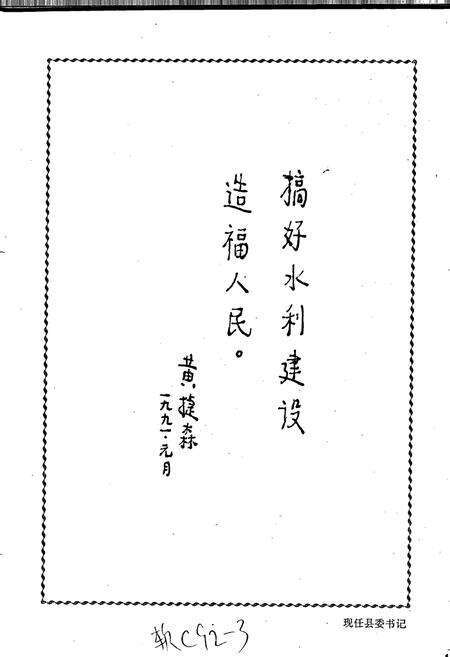 搞好水利建设
造福人民。
黄捷森
一九九一·元月
现任县委书记
C92-3